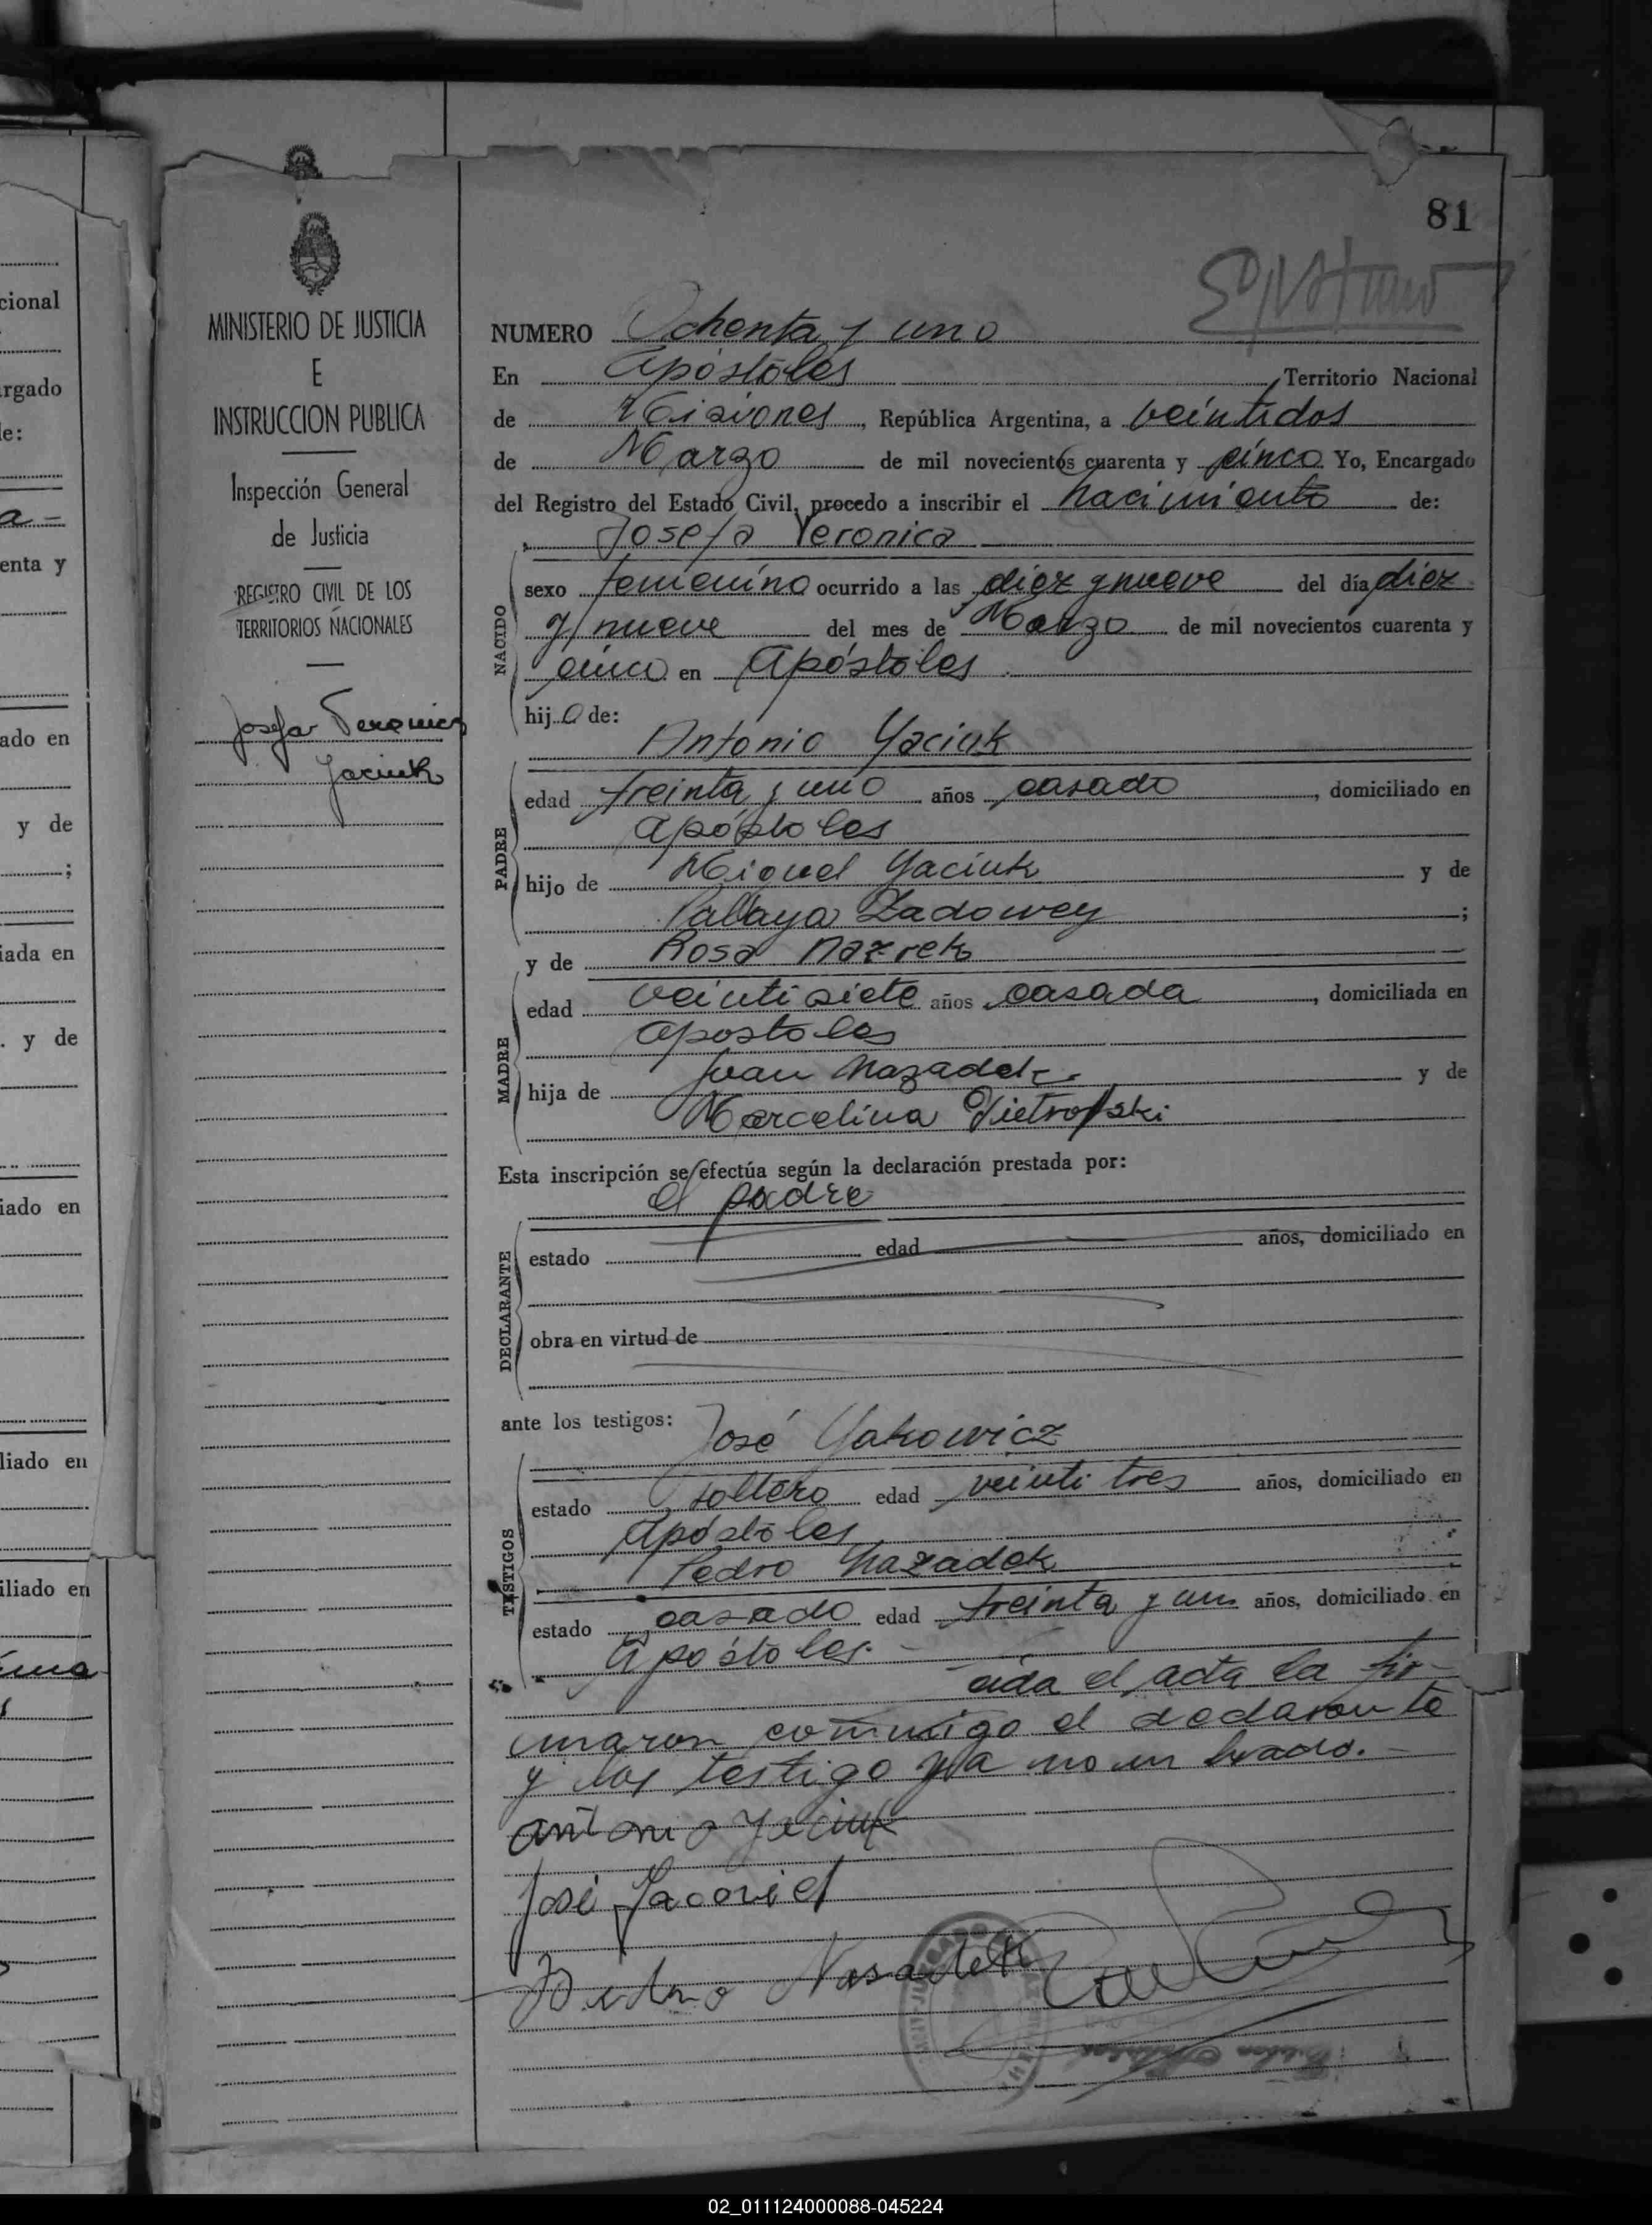 81
MINISTERIO DE JUSTICIA
E
INSTRUCCION PUBLICA
Inspección General
de Justicia
REGISTRO CIVIL DE LOS
TERRITORIOS NACIONALES
Josefa Veronica
Yaciuk
NUMERO Ochenta y uno
En Apóstoles Territorio Nacional
de Misiones, República Argentina, a veintidos
de Marzo de mil novecientos cuarenta y cinco Yo, Encargado
del Registro del Estado Civil, procedo a inscribir el nacimiento de:
Josefa Veronica
NACIDO
sexo femenino ocurrido a las diez y nueve del día diez
y nueve del mes de Marzo de mil novecientos cuarenta y
cinco en Apóstoles
hija de:
Antonio Yaciuk
PADRE
edad treinta y uno años casado, domiciliado en
Apóstoles
hijo de Miguel Yaciuk y de
Zadowey;
y de Rosa Nazrek
MADRE
edad veintisiete años casada, domiciliada en
Apostoles
hija de Juan Nazadek y de
Marcelina
Esta inscripción se efectúa según la declaración prestada por:
el padre
DECLARANTE
estado edad años, domiciliado en
obra en virtud de
ante los testigos:
José Yakowicz
TESTIGOS
estado soltero edad veinti tres años, domiciliado en
Apóstoles
Pedro Nazadek
estado casado edad treinta y un años, domiciliado en
Apóstoles.
el acta la fir-
maron conmigo el declarante
y los testigo ya nombrado.
Antonio Yaciuk
José
Nasadek
cional
argado
de:
a-
enta y
ado en
y de
;
iada en
. y de
iado en
liado en
iliado en
02_011124000088-045224